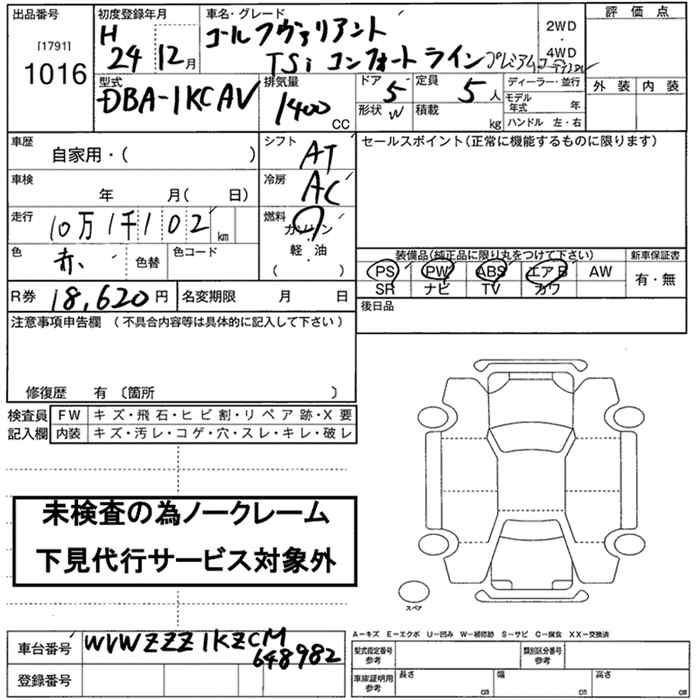 出品番号
[1791]
1016
初度登録年月
H
24 12月
車名・グレード
ゴルフヴァリアント
TSi コンフォートライン プレミアムエディション
2WD
・
4WD
評価点
外装 内装
型式
DBA-1KCAV
排気量
1400
CC
ドア 5
形状 W
定員 5人
積載 kg
ディーラー・並行
モデル年式 年
ハンドル 左・右
車歴
自家用・( )
シフト
AT
車検
年 月( 日)
冷房
AC
走行
10万1千102 km
燃料
ガソリン
軽・油
( )
色
赤. 色替
色コード
R券 18,620円
名変期限 月 日
セールスポイント(正常に機能するものに限ります)
装備品(純正品に限り丸をつけて下さい)
新車保証書
PS PW ABS エアB AW
SR ナビ TV カワ
有・無
後日品
注意事項申告欄 (不具合内容等は具体的に記入して下さい)
修復歴 有〔箇所 〕
検査員
記入欄
FW キズ・飛石・ヒビ割・リペア跡・X要
内装 キズ・汚レ・コゲ・穴・スレ・キレ・破レ
未検査の為ノークレーム
下見代行サービス対象外
スペア
A−キズ E−エクボ U−凹み W−補修跡 S−サビ C−腐食 XX−交換済
車台番号
WVWZZZ1KZCM
648982
登録番号
型式指定番号
参考
類別区分番号
参考
車庫証明用
参考
長さ cm
幅 cm
高さ cm